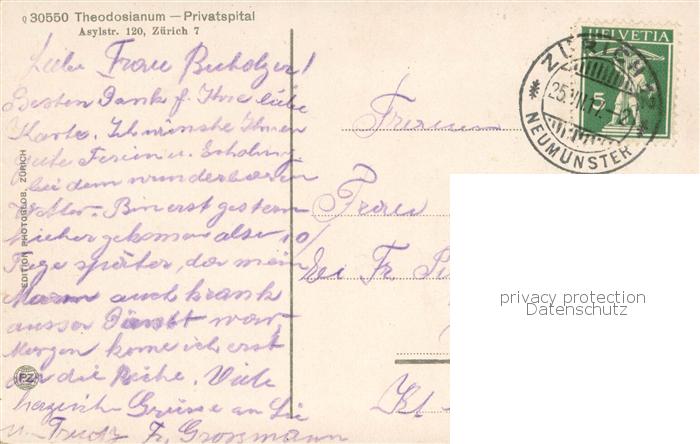 Q 30550 Theodosianum — Privatspital
Asylstr. 120, Zürich 7
Liebe Frau Bucholzer!
Besten Dank f. Ihre liebe
Karte. Ich wünsche Ihnen
gute Ferien u. Erholung
bei dem wunderbaren
Wetter. Bin erst gestern
hieher gekomen also 10
Tage später, da mein
Mann auch krank
ausser Dienst war.
Morgen kome ich erst
an die Reihe. Viele
herzlich Grüsse an Sie
u. Trudz Fr. Grossmann
EDITION PHOTOGLOB, ZÜRICH
PZ
HELVETIA
5
ZÜRICH
25. VII. 17.
NEUMÜNSTER
Frau
bei Fr.
Kl
privacy protection
Datenschutz